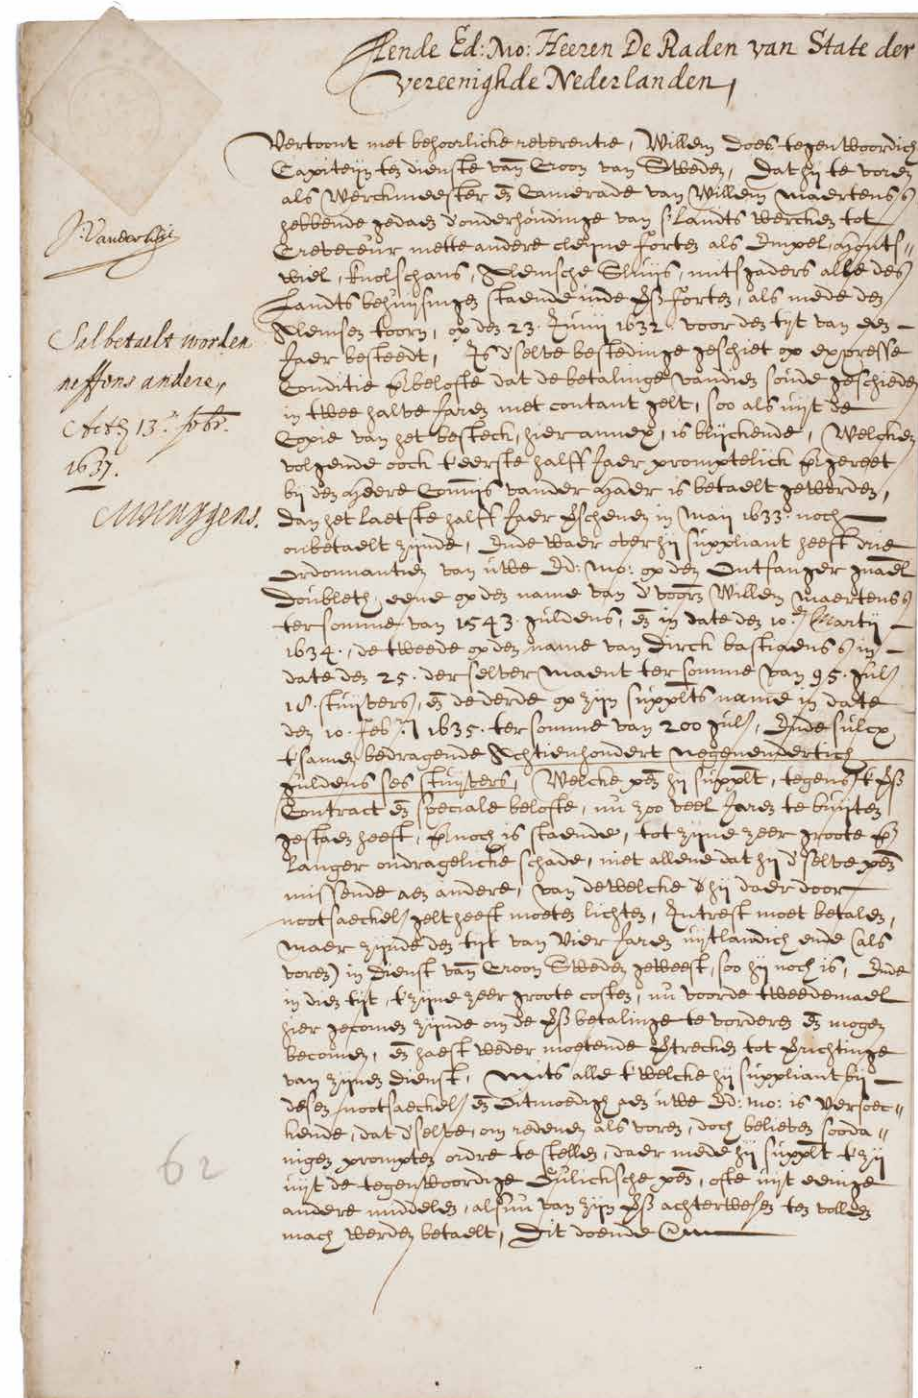 Aende Ed: Mo: Heeren De Raden van State der
Vereenighde Nederlanden,
Vertoont met behoorlicke reverentie, Willem Does tegenwoordich
Capiteijn ten dienste van Croon van Sweden, Dat hij te voren
als Werckmeester en Camerade van Willem Maertenss
hebbende gedaen d'onderhoudinge van s'Landts wercken tot
Creveceur mette andere cleijne forten als Empel, Hontswiel, knolschans, Alemsche Sluijs, mitsgaders alle des
Landts behuijsingen staende inde forten, als mede den
Alemsen toorn, op den 23. Junij 1632. voor den tijt van een
Jaer besteedt, Is d'selve bestedinge geschiet op expresse
Conditie beloste dat de betalinge vandien soude geschieden
in twee halve Jaren met contant gelt, soo als uijt de
Copie van het besteck, hier annex, is blijckende, Welcken
volgende oock t'eerste halff Jaer promptelick gereet
bij den Heere Commis vander Haer is betaelt geworden,
dan het laetste halff Jaer in Maij 1633. noch
onbetaelt zijnde, Ende waer over hij suppliant heeft drie
Ordonnantien van uwe Ed: Mo: op den Ontfanger
Doubleth, eene op den name van d'voorn Willem Maertenss
ter somme van 1543. guldens, en in date den 10. Martij
1634., de tweede op den name van Dirck bastiaenss in
date den 25. der selver maent ter somme van 95. gul
18. stuijvers, en de derde op zijn supplts name in date
den 10. feb 1635. ter somme van 200 gul, Ende sulcx
t'samen bedragende Achtienhondert negenendertich
guldens ses stuijvers, Welcke hij supplt, tegens
Contract en speciale beloste, nu zoo veel Jaren te buijten
gestaen heeft, noch is staende, tot zijne zeer groote
langer ondragelicke schade, niet allene dat hij d'selve
missende aen andere, van dewelcke hij daer door
nootsaeckel gelt heeft moeten lichten, Intrest moet betalen,
Maer zijnde den tijt van vier Jaren uijtlandich ende (als
voren) in dienst van Croon Sweden geweest, soo hij noch is, Ende
in dien tijt, t'zijne zeer groote costen, nu voorde tweedemael
hier gecomen zijnde om de betalinge te vorderen en mogen
becomen, en haest weder moetende trecken tot
van zijnen dienst, Mits alle t'welcke hij suppliant bij
desen nootsaeckel en oitmoedigh aen uwe Ed: Mo: is versoec=
kende, dat d'selve, om redenen als voren, doch believen sooda=
nigen prompten ordre te stellen, daer mede hij supplt t'zij
uijt de tegenwoordige Gulicksche ofte uijt eenige
andere middelen, alsnu van zijn achterwesen ten vollen
mach werden betaelt, Dit doende
Sal betaelt worden
neffens andere,
Actu 13.
1637.
62